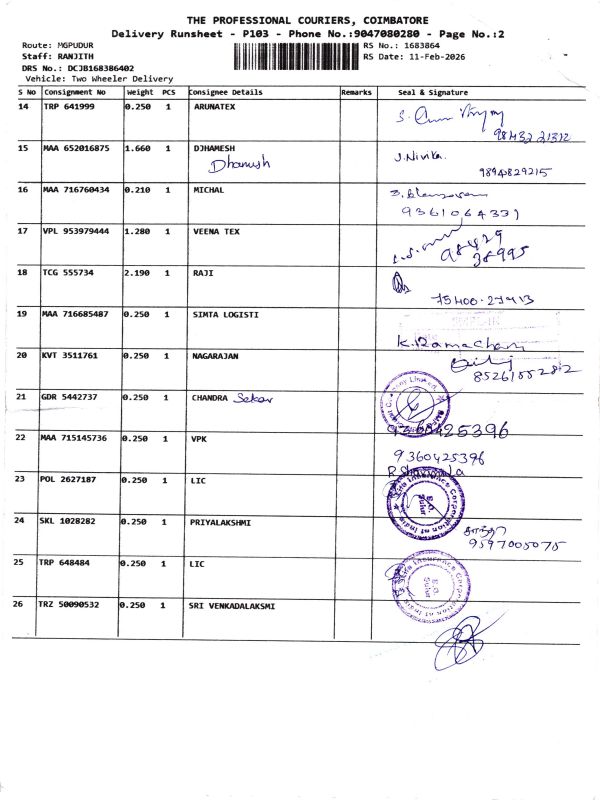 THE PROFESSIONAL COURIERS, COIMBATORE
Delivery Runsheet - P103 - Phone No.:9047080280 - Page No.:2
Route: MGPUDUR
RS No.: 1683864
Staff: RANJITH
RS Date: 11-Feb-2026
DRS No.: DCJB168386402
Vehicle: Two Wheeler Delivery
S No Consignment No Weight PCS Consignee Details Remarks Seal & Signature
14 TRP 641999 0.250 1 ARUNATEX
98432 21312
15 MAA 652016875 1.660 1 DJHAMESH J.Nivika.
Dhanush 9894829215
16 MAA 716760434 0.210 1 MICHAL
9361064331
17 VPL 953979444 1.280 1 VEENA TEX
98429
38995
18 TCG 555734 2.190 1 RAJI
75400-27413
19 MAA 716685487 0.250 1 SIMTA LOGISTI
K.Ramachan
20 KVT 3511761 0.250 1 NAGARAJAN
8526155282
21 GDR 5442737 0.250 1 CHANDRA Sekar
9360425396
22 MAA 715145736 0.250 1 VPK
9360425396
23 POL 2627187 0.250 1 LIC
Life Insurance Corporation of India
24 SKL 1028282 0.250 1 PRIYALAKSHMI
9597005075
25 TRP 648484 0.250 1 LIC
Life Insurance Corporation of India
26 TRZ 50090532 0.250 1 SRI VENKADALAKSMI